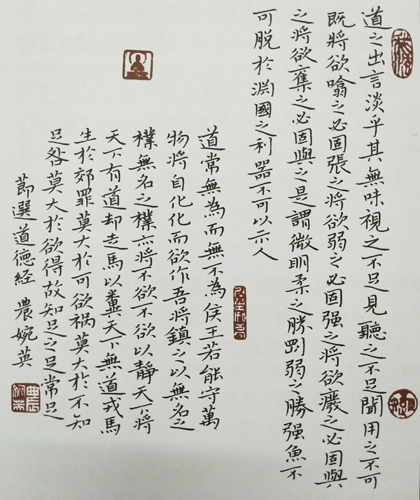 道之出言淡乎其無味視之不足見聽之不足聞用之不可
既將欲噏之必固張之將欲弱之必固强之將欲廢之必固與
之將欲奪之必固與之是謂微明柔之勝剛弱之勝强魚不
可脱於淵國之利器不可以示人
道常無為而無不為侯王若能守萬
物將自化化而欲作吾將鎮之以無名之
樸無名之樸亦將不欲不欲以靜天下將
天下有道却走馬以糞天下無道戎馬
生於郊罪莫大於可欲禍莫大於不知
足咎莫大於欲得故知足之足常足
節選道德经 農婉英